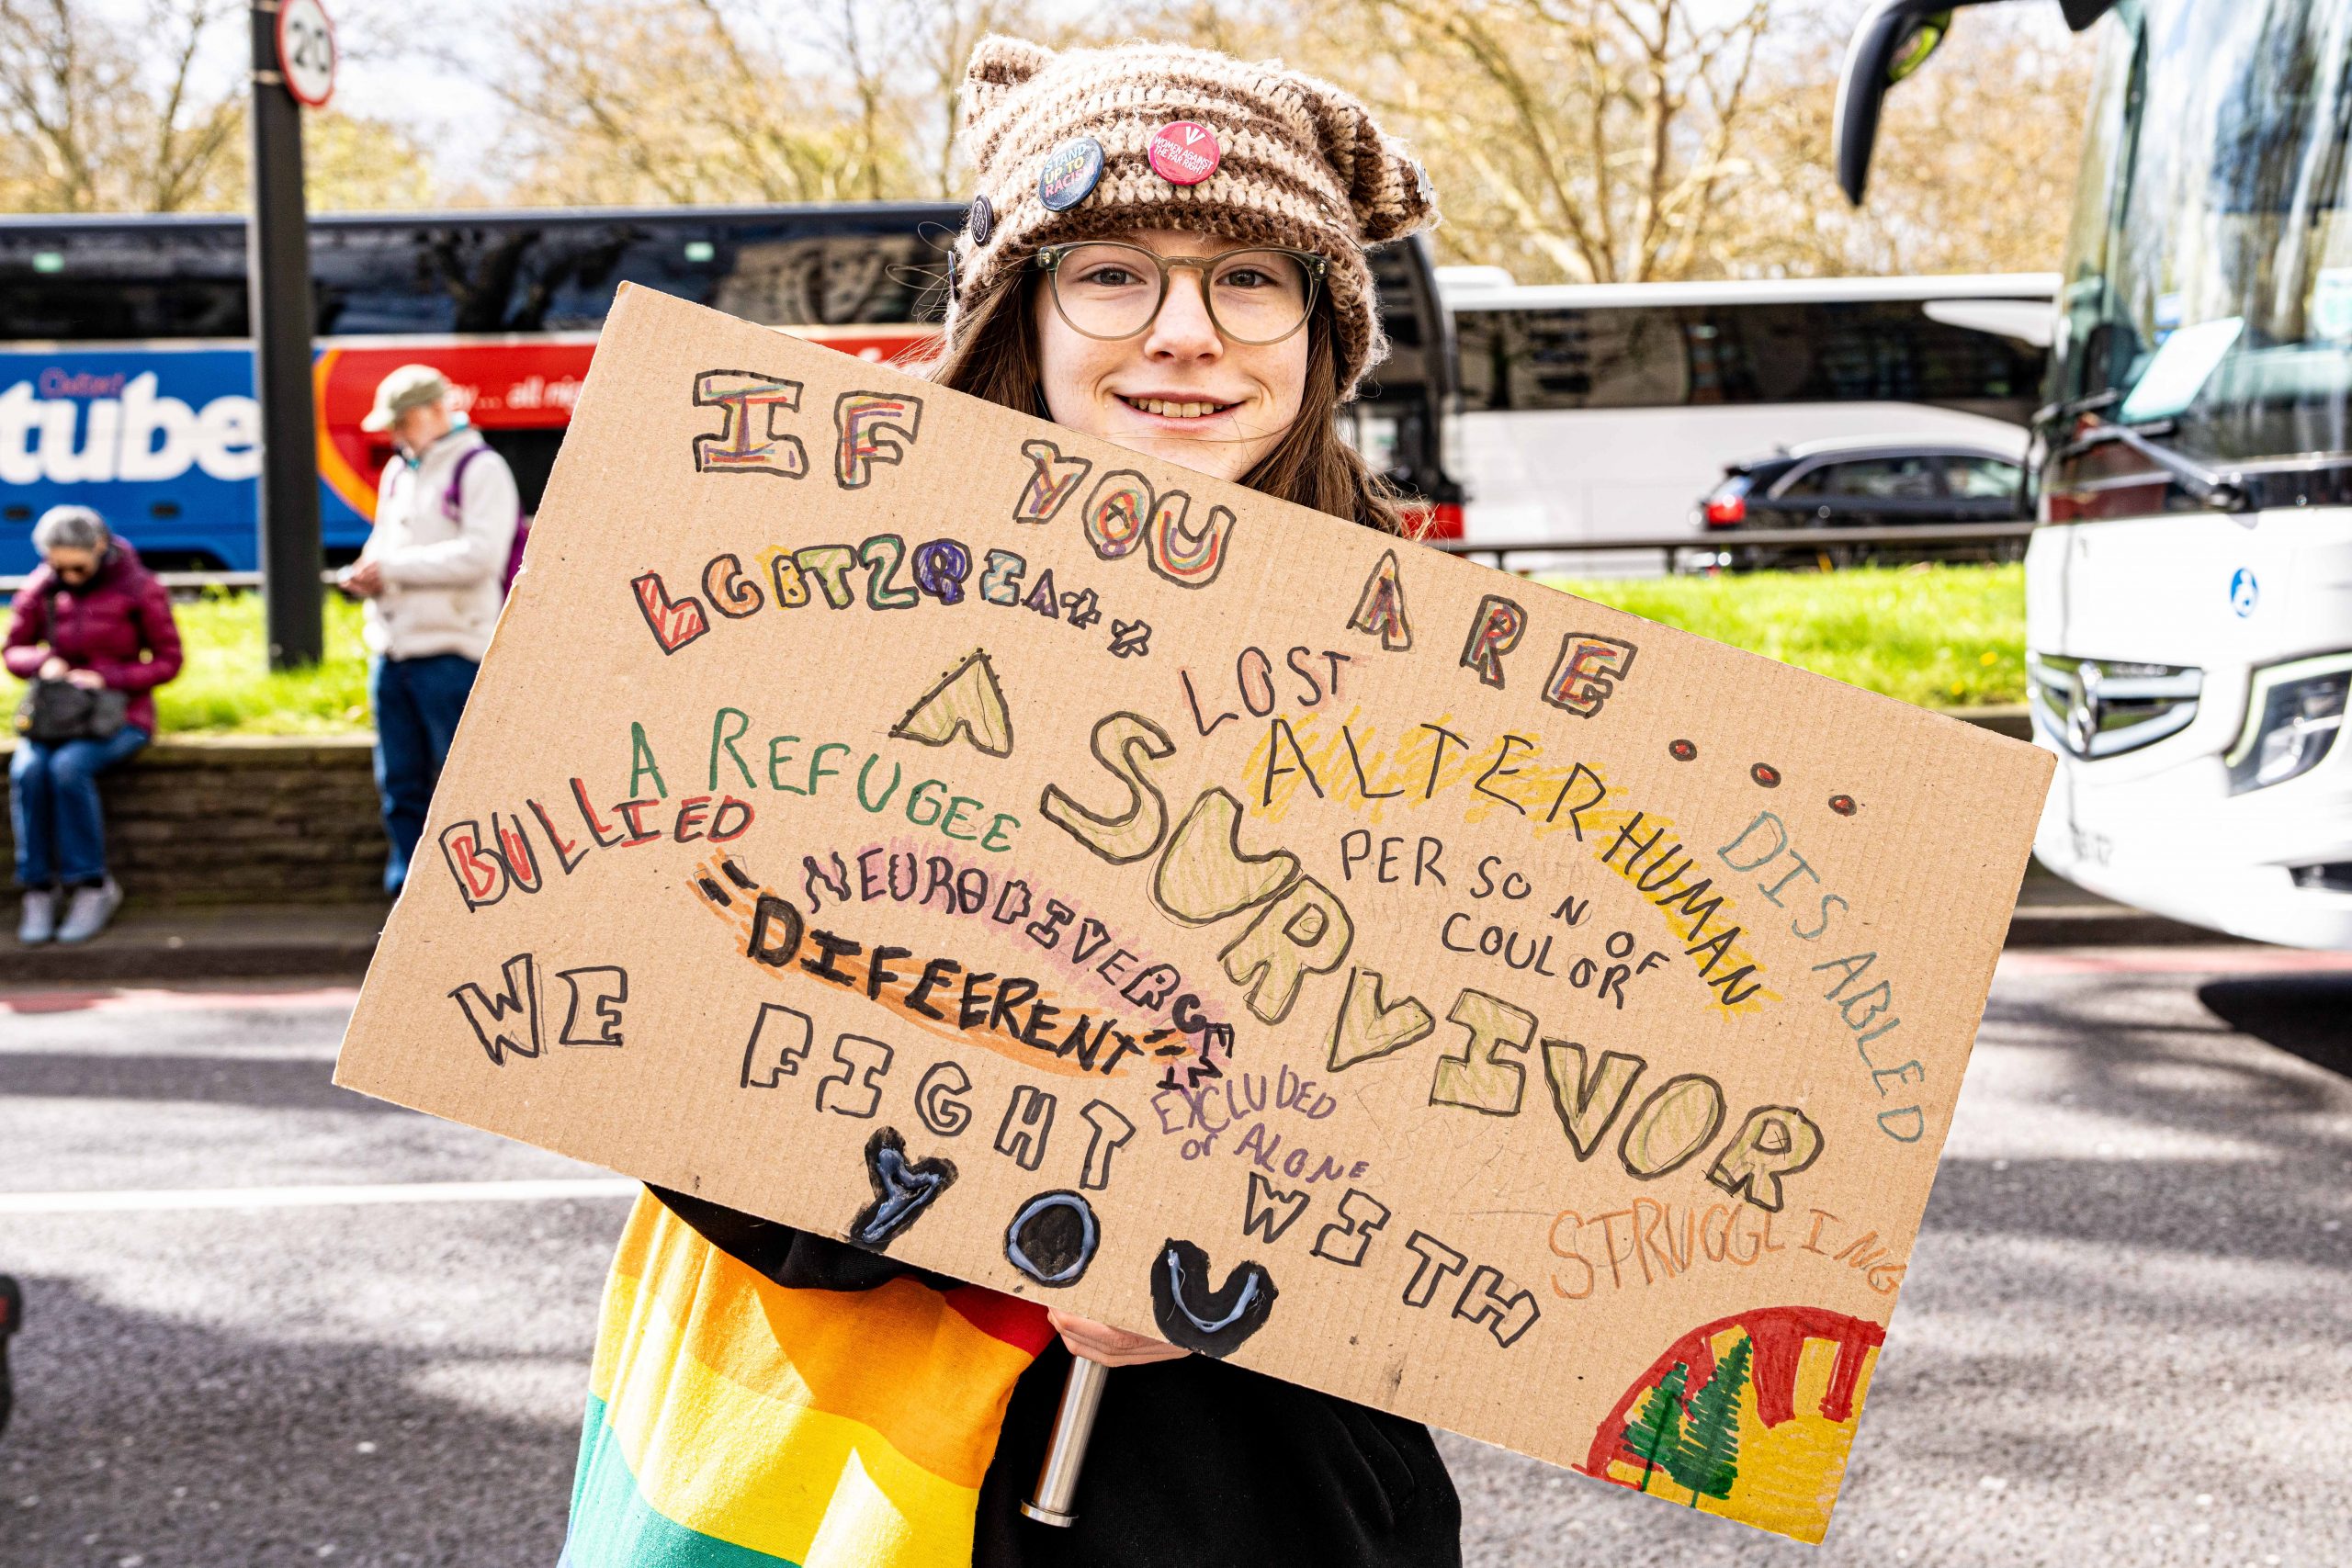 20
STAND
UP TO
RACISM
WOMEN AGAINST
THE FAR RIGHT
Oxford
tube
... all nig
IF YOU ARE...
LGBT2QIA++
LOST
A SURVIVOR
ALTERHUMAN
DISABLED
A REFUGEE
BULLIED
PERSON OF
COULOR
NEURODIVERGENT
"DIFEERENT"
WE FIGHT
EXCLUDED
or ALONE
WITH
YOU
STRUGGLING